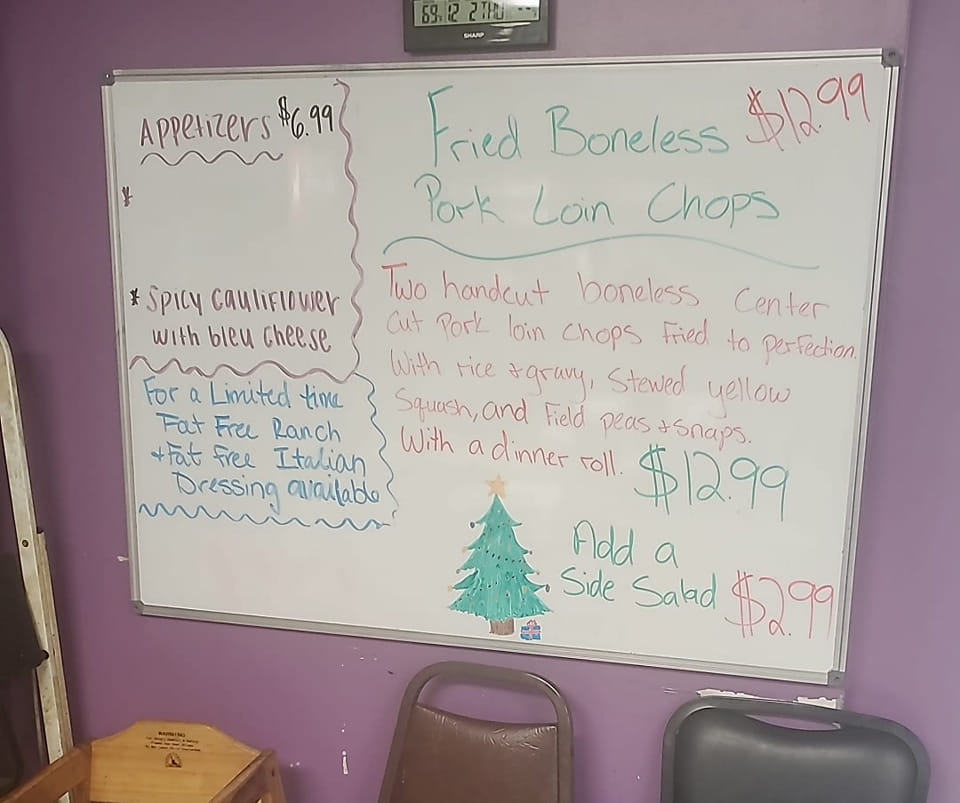 69 12 2 THU
SHARP
Appetizers $6.99
*
* Spicy cauliflower
with bleu cheese
For a Limited time
Fat Free Ranch
+ Fat Free Italian
Dressing available
Fried Boneless $12.99
Pork Loin Chops
Two handcut boneless center
cut pork loin chops fried to perfection.
With rice + gravy, stewed yellow
squash, and field peas + snaps.
With a dinner roll. $12.99
Add a
Side Salad $2.99
WARNING